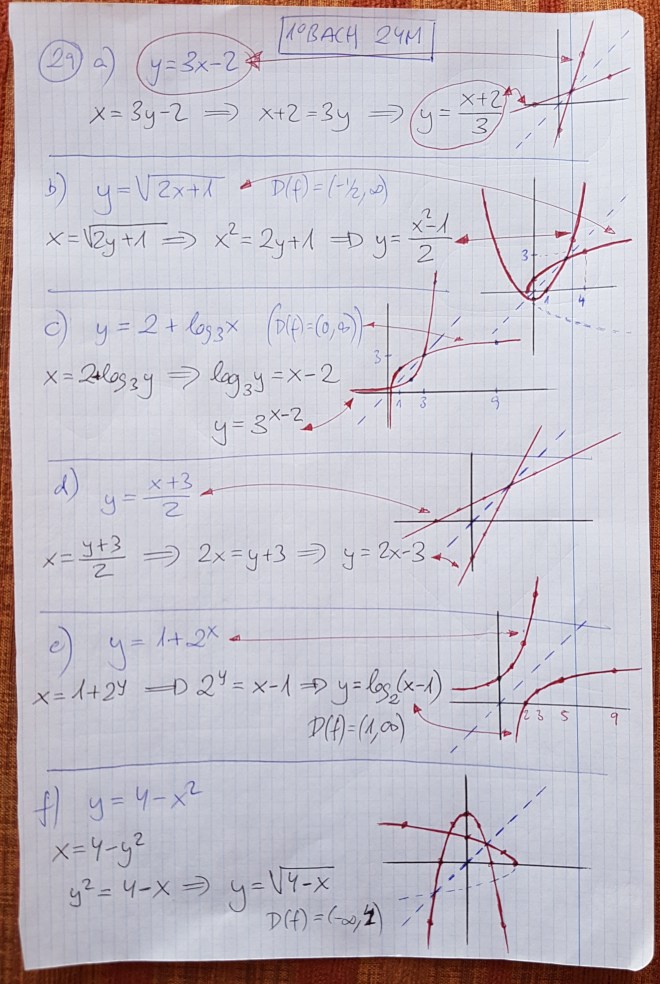 1ºBACH 24M
29 a) y=3x-2
x=3y-2 ⟹ x+2=3y ⟹ y=\frac{x+2}{3}
b) y=√(2x+1) D(f)=(-1/2,∞)
x=√(2y+1) ⟹ x²=2y+1 ⟹ y=\frac{x²-1}{2}
3
1 4
c) y=2+log₃x (D(f)=(0,∞))
x=2+log₃y ⟹ log₃y=x-2
3
1 3 9
y=3^{x-2}
d) y=\frac{x+3}{2}
x=\frac{y+3}{2} ⟹ 2x=y+3 ⟹ y=2x-3
e) y=1+2^x
x=1+2^y ⟹ 2^y=x-1 ⟹ y=log₂(x-1)
2 3 5 9
D(f)=(1,∞)
f) y=4-x²
x=4-y²
y²=4-x ⟹ y=√(4-x)
D(f)=(-∞,4)